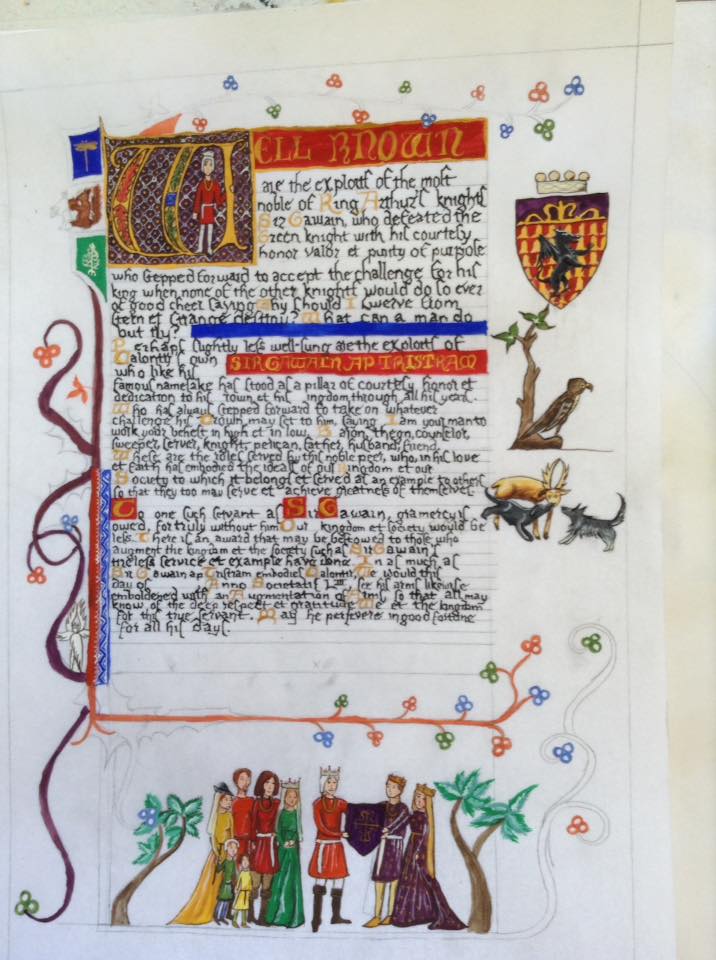 WELL KNOWN
are the exploits of the most
noble of King Arthur's knights
Sir Gawain, who defeated the
Green knight with his courtesy
honor valor et purity of purpose
who stepped forward to accept the challenge for his
king when none of the other knights would do so ever
of good cheer saying Why should I swerve from
stern et strange destiny? What can a man do
but try?
Perhaps slightly less well-sung are the exploits of
Calontir's own SIR GAWAIN AP TRISTRAM
who like his
famous namesake has stood as a pillar of courtesy, honor et
dedication to his rown et his ingdom through all his years.
Who has always stepped forward to take on whatever
challenge his Crown may set to him, saying I am your man to
work your behest in high et in low. Baron, thegn, counselor,
sweeper, server, knight, pelican, father, husband, friend
These are the roles served by this noble peer, who, in his love
et faith has embodied the ideals of our Kingdom et our
Society to which it belongs et served as an example to others
so that they too may serve et achieve greatness of themselves.
To one such servant as Sir Gawain, gramercy is
owed, for truly without him Our kingdom et society would be
less. There is an award that may be bestowed to those who
augment the kingdom et the society such as Sir Gawain's
tireless service et example have done. In as much as
Sir Gawain ap Tristram embodies Calontir, We would this
day of Anno Societatis L see his arms likewise
emboldened with an Augmentation of Arms, so that all may
know of the deep respect et gratitude We et the kingdom
for this true servant. May he persevere in good fortune
for all his days.